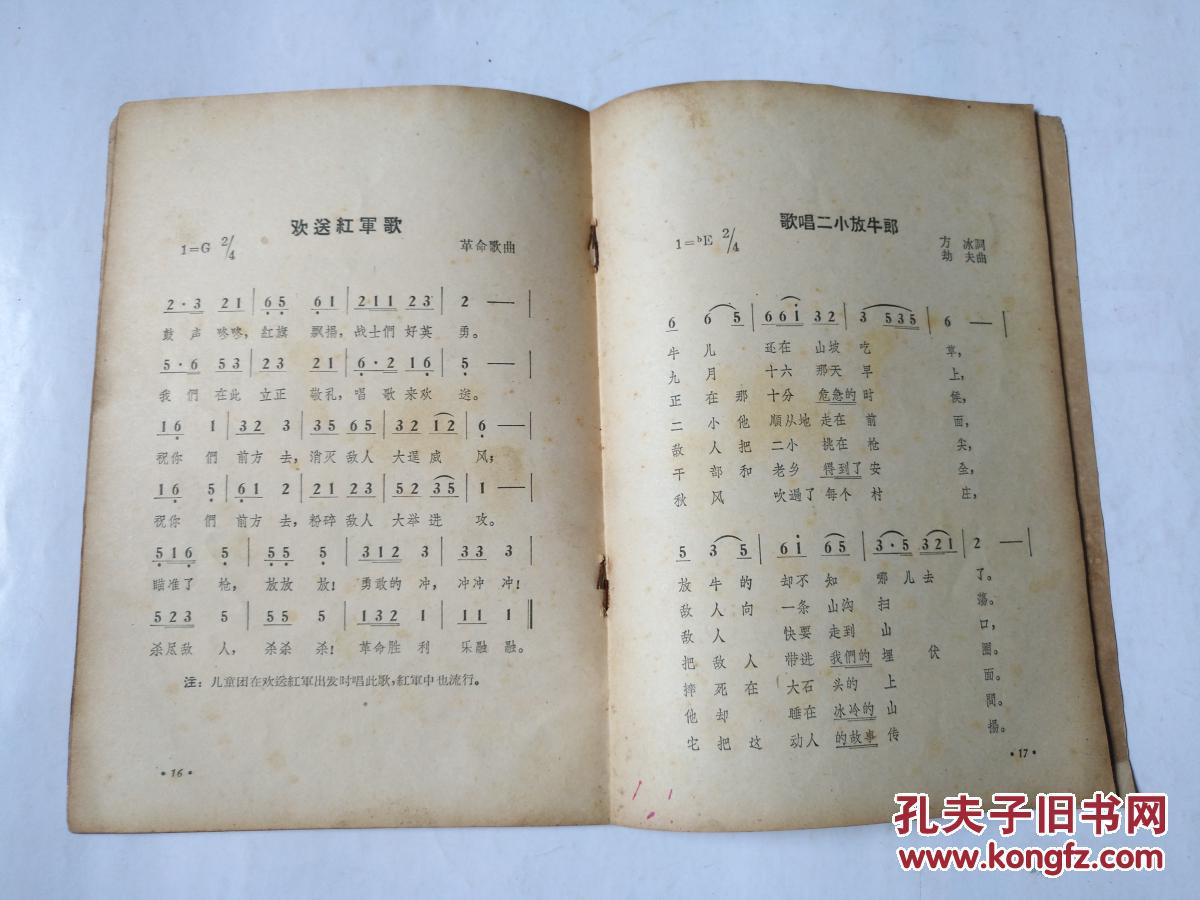 欢送紅軍歌
1=G 2/4 革命歌曲
2·3 21 | 65 61 | 211 23 | 2 — |
鼓声 咚咚, 紅旗 飘揚, 战士們 好英 勇。
5·6 53 | 23 21 | 6·2 16 | 5 — |
我們 在此 立正 敬礼, 唱歌 来欢 送。
16 1 | 32 3 | 35 65 | 32 12 | 6 — |
祝你 們 前方 去, 消灭 敌人 大逞 威 风;
16 5 | 61 2 | 21 23 | 52 35 | 1 — |
祝你 們 前方 去, 粉碎 敌人 大举 进 攻。
516 5 | 55 5 | 312 3 | 33 3 |
瞄准了 枪, 放放 放! 勇敢的 冲, 冲冲 冲!
523 5 | 55 5 | 132 1 | 11 1 ‖
杀尽敌 人, 杀杀 杀! 革命胜 利 乐融 融。
注: 儿童团在欢送紅軍出发时唱此歌,紅軍中也流行。
·16·
歌唱二小放牛郎
1=bE 2/4 方冰詞
劫夫曲
6 6 5 | 661 32 | 3 535 | 6 — |
牛儿 还在 山坡 吃 草,
九月 十六 那天 早 上,
正在那 十分 危急的 时 候,
二小他 順从地 走在 前 面,
敌人把 二小 挑在 枪 尖,
干部和 老乡 得到了 安 全,
秋风 吹过了 每个 村 庄,
5 3 5 | 61 65 | 3·5 321 | 2 — |
放牛的 却不知 哪儿去 了。
敌人向 一条 山沟 扫 蕩。
敌人 快要 走到 山 口,
把敌人 带进 我們的 埋伏 圈。
摔死在 大石 头的 上 面。
他却 睡在 冰冷的 山 間。
它把这 动人 的故事 传 揚。
·17·
孔夫子旧书网
www.kongfz.com